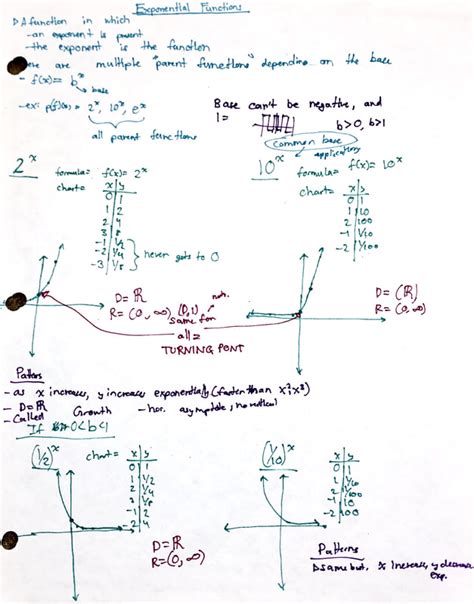 Exponential Functions
▷ A function in which
- an exponent is present
- the exponent is the function
are multiple "parent functions" depending on the base
- f(x) = bˣ
↳ base
- ex: p(f)(x) = 2ˣ, 10ˣ, eˣ
all parent functions
Base can't be negative, and
1 =
b>0, b>1
common base
application
2ˣ
formula = f(x) = 2ˣ
chart =
x y
0 1
1 2
2 4
3 8
-1 1/2
-2 1/4
-3 1/8
never gets to 0
10ˣ
formula = f(x) = 10ˣ
chart =
x y
0 1
1 10
2 100
-1 1/10
-2 1/100
D = ℝ
R = (0, ∞)
(0,1)
same for
all =
TURNING POINT
D = (ℝ)
R = (0, ∞)
- as x increases, y increases exponentially (faster than x³, x²)
- D = ℝ
Growth
- hor. asymptote, no vertical
- Called
If 0<b<1
(1/2)ˣ
chart =
x y
0 1
1 1/2
2 1/4
3 1/8
-1 2
-2 4
D = ℝ
R = (0, ∞)
(1/10)ˣ
x y
0 1
1 1/10
2 1/100
-1 10
-2 100
Patterns
▷ same but, x increase, y decrease
exp.